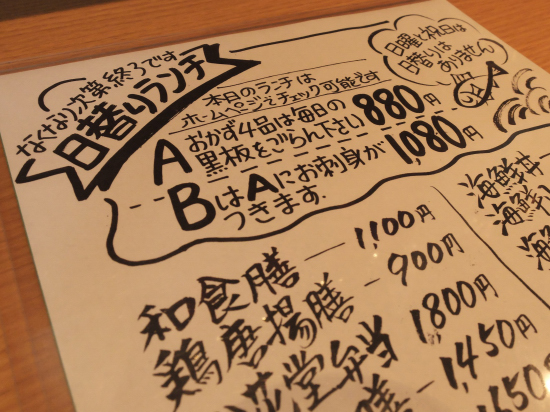 なくなり次第終了です
日替りランチ
本日のランチは
ホームページでチェック可能です
日曜と祝日は
日替りは
ありません
A おかず4品は毎日の
黒板をごらん下さい 880円
B はAにお刺身が
つきます. 1,080円
和食膳 1,100円
鶏唐揚膳 900円
堂弁当 1,800円
膳 1,450円
海鮮丼
海鮮
海